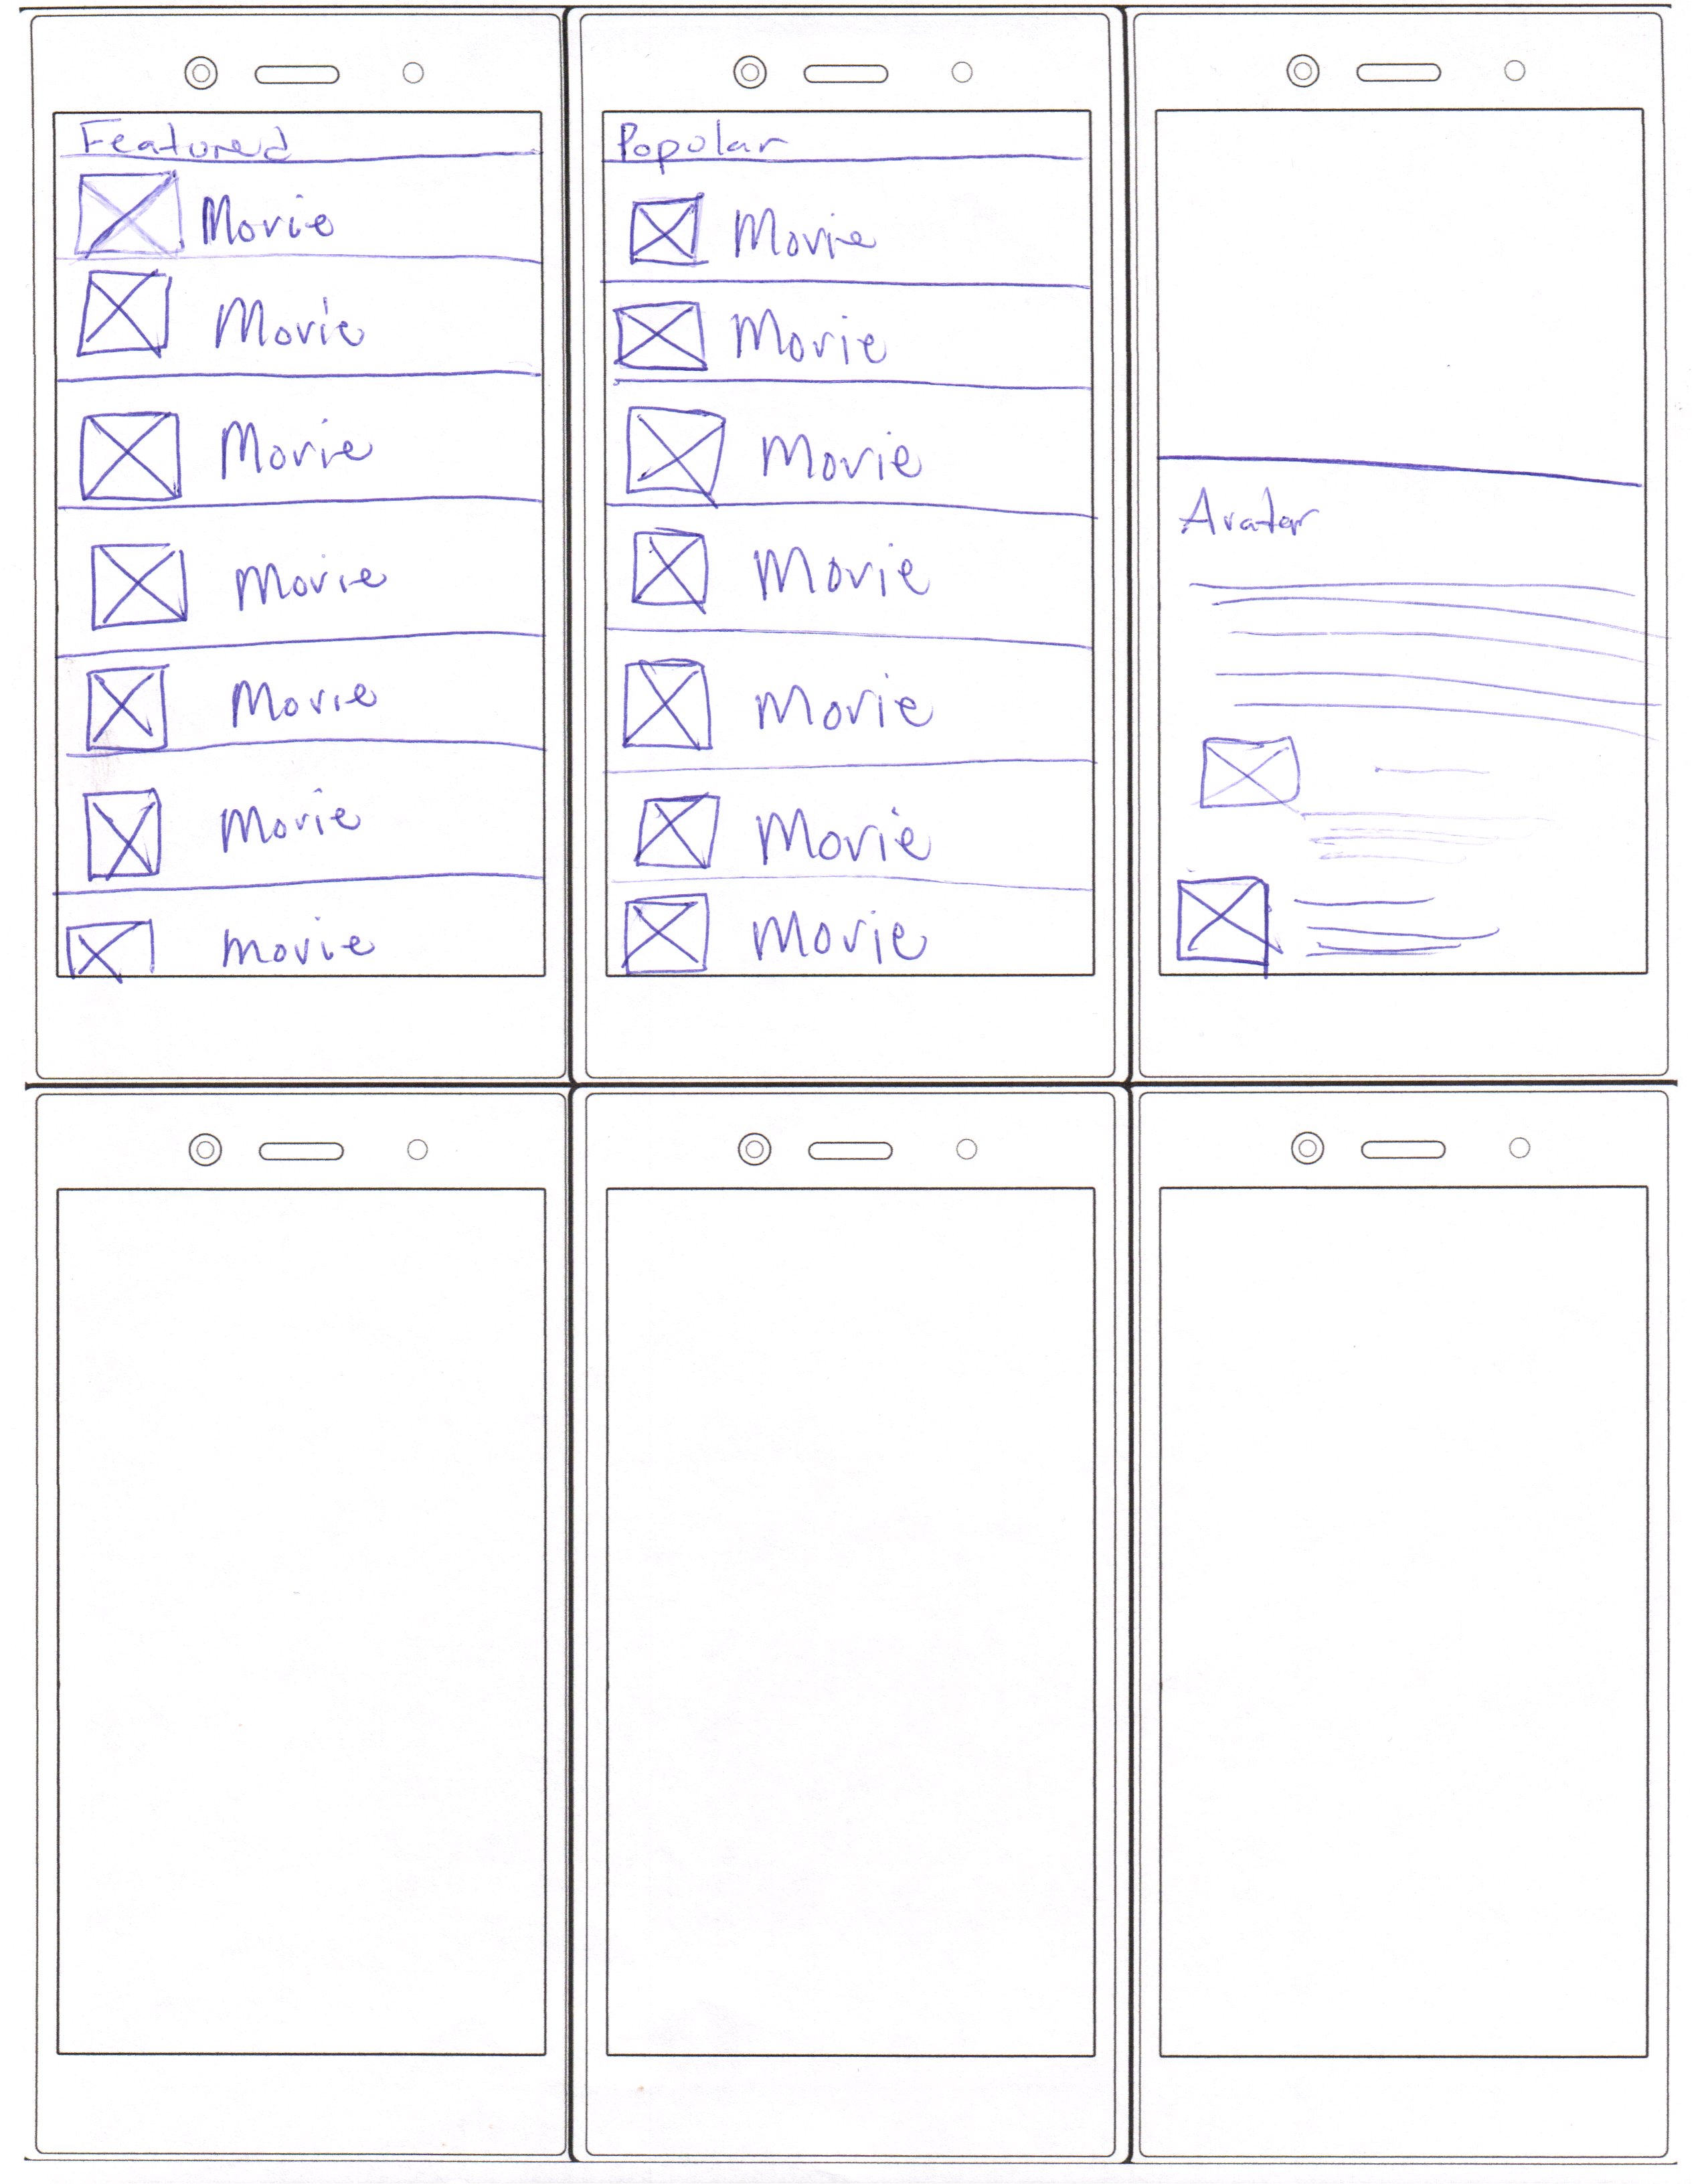 Featured
Movie
Movie
Movie
Movie
Movie
Movie
Movie
Popular
Movie
Movie
Movie
Movie
Movie
Movie
Movie
Avatar